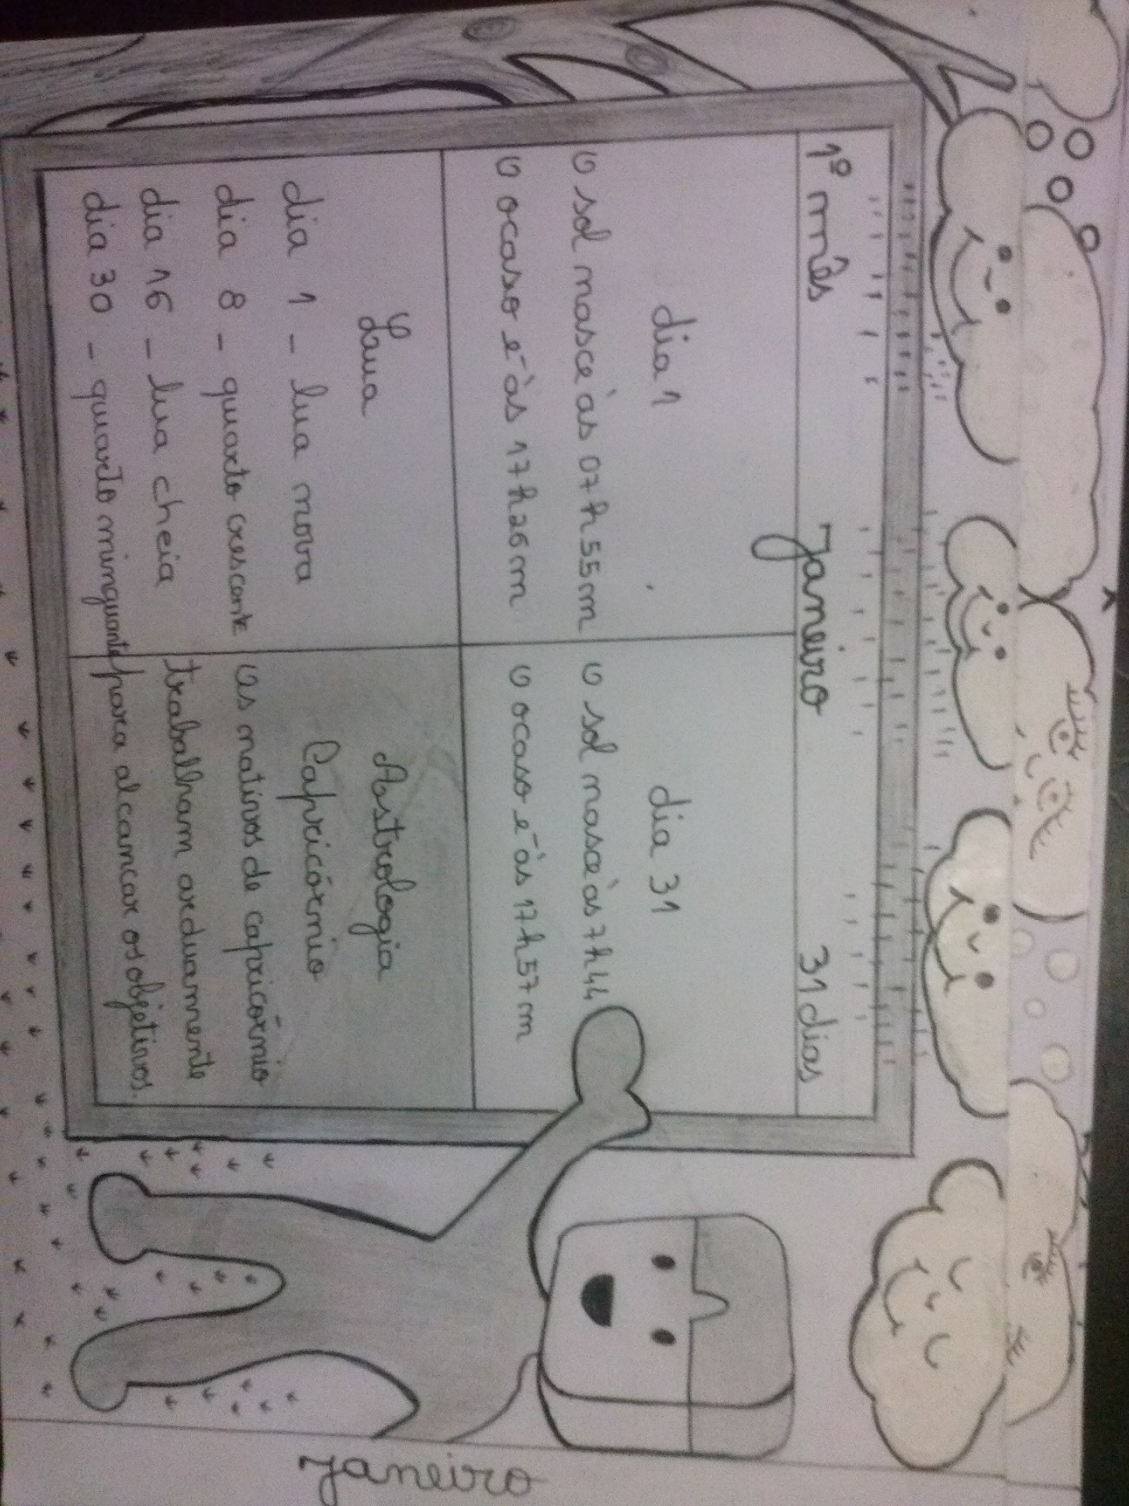 1º mês Janeiro 31 dias
dia 1
O sol nasce às 07h55m
O ocaso é às 17h26m
dia 31
O sol nasce às 7h44
O ocaso é às 17h57m
Lua
dia 1 - lua nova
dia 8 - quarto crescente
dia 16 - lua cheia
dia 30 - quarto minguante
Astrologia
Capricórnio
Os nativos de capricórnio
trabalham arduamente
para alcancar os objetivos.
Janeiro